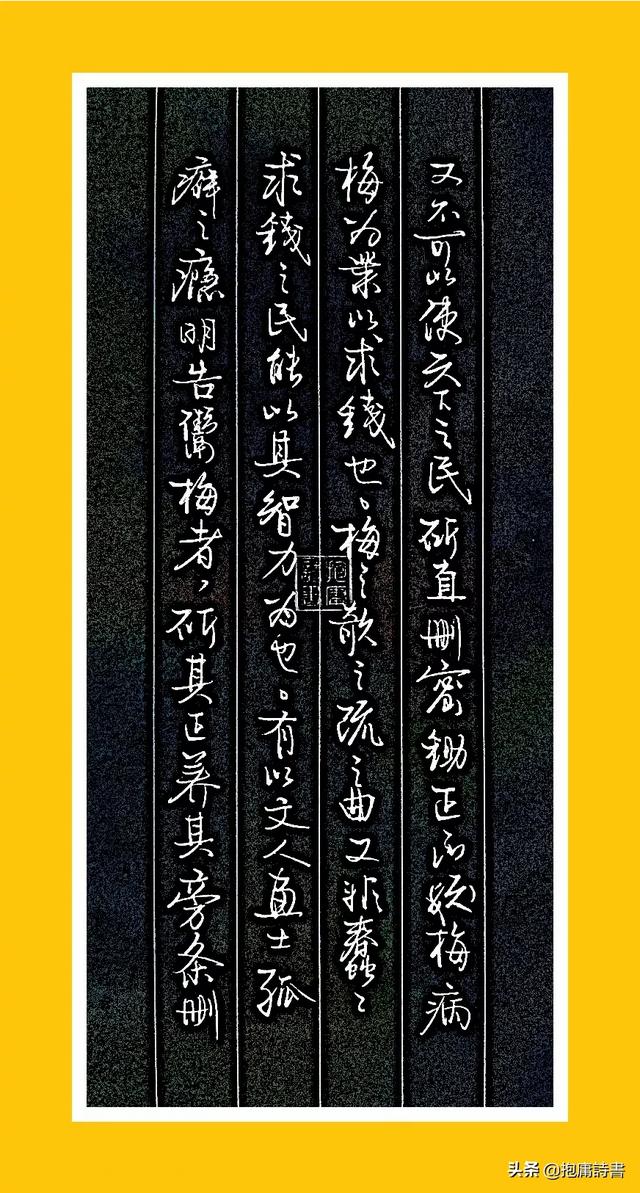 又不可以使天下之民斫直刪密鋤正以殀梅病
梅为業以求錢也。梅之欹之疏之曲又非蠢〻
求錢之民能以其智力为也。有以文人畫士孤
癖之癮明告鬻梅者,斫其正养其旁条刪
抱庸詩書
头条 @抱庸詩書